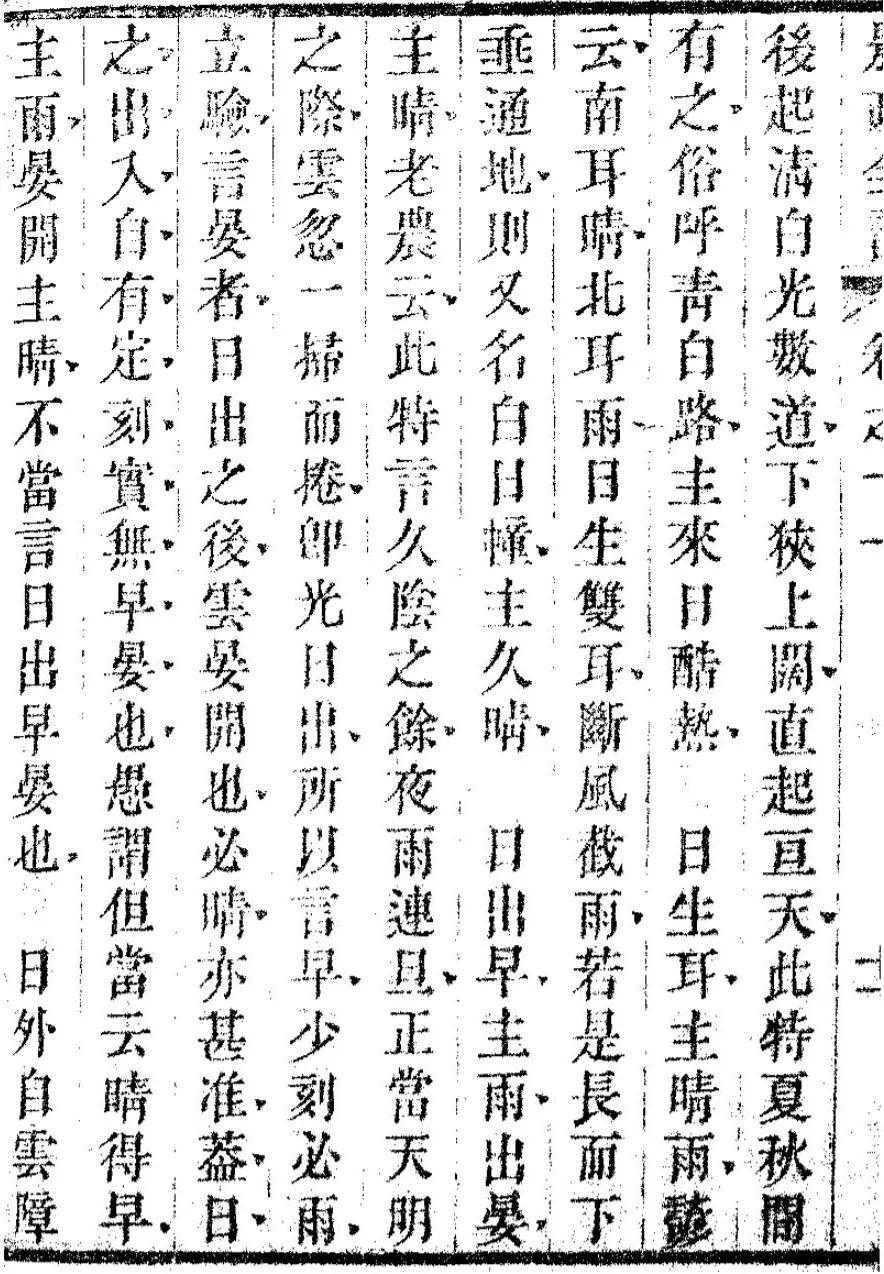 農政全書 卷之十一 十二
後起淸白光數道下狹上闊直起亘天此特夏秋間
有之俗呼靑白路主來日酷熱 日生耳主晴雨諺
云南耳晴北耳雨日生雙耳斷風截雨若是長而下
垂通地則又名白日幢主久晴 日出早主雨出晏
主晴老農云此特言久陰之餘夜雨連旦正當天明
之際雲忽一掃而捲卽光日出所以言早少刻必雨
立驗言晏者日出之後雲晏開也必晴亦甚准葢日
之出入自有定刻實無早晏也愚謂但當云晴得早
主雨晏開主晴不當言日出早晏也 日外自雲障